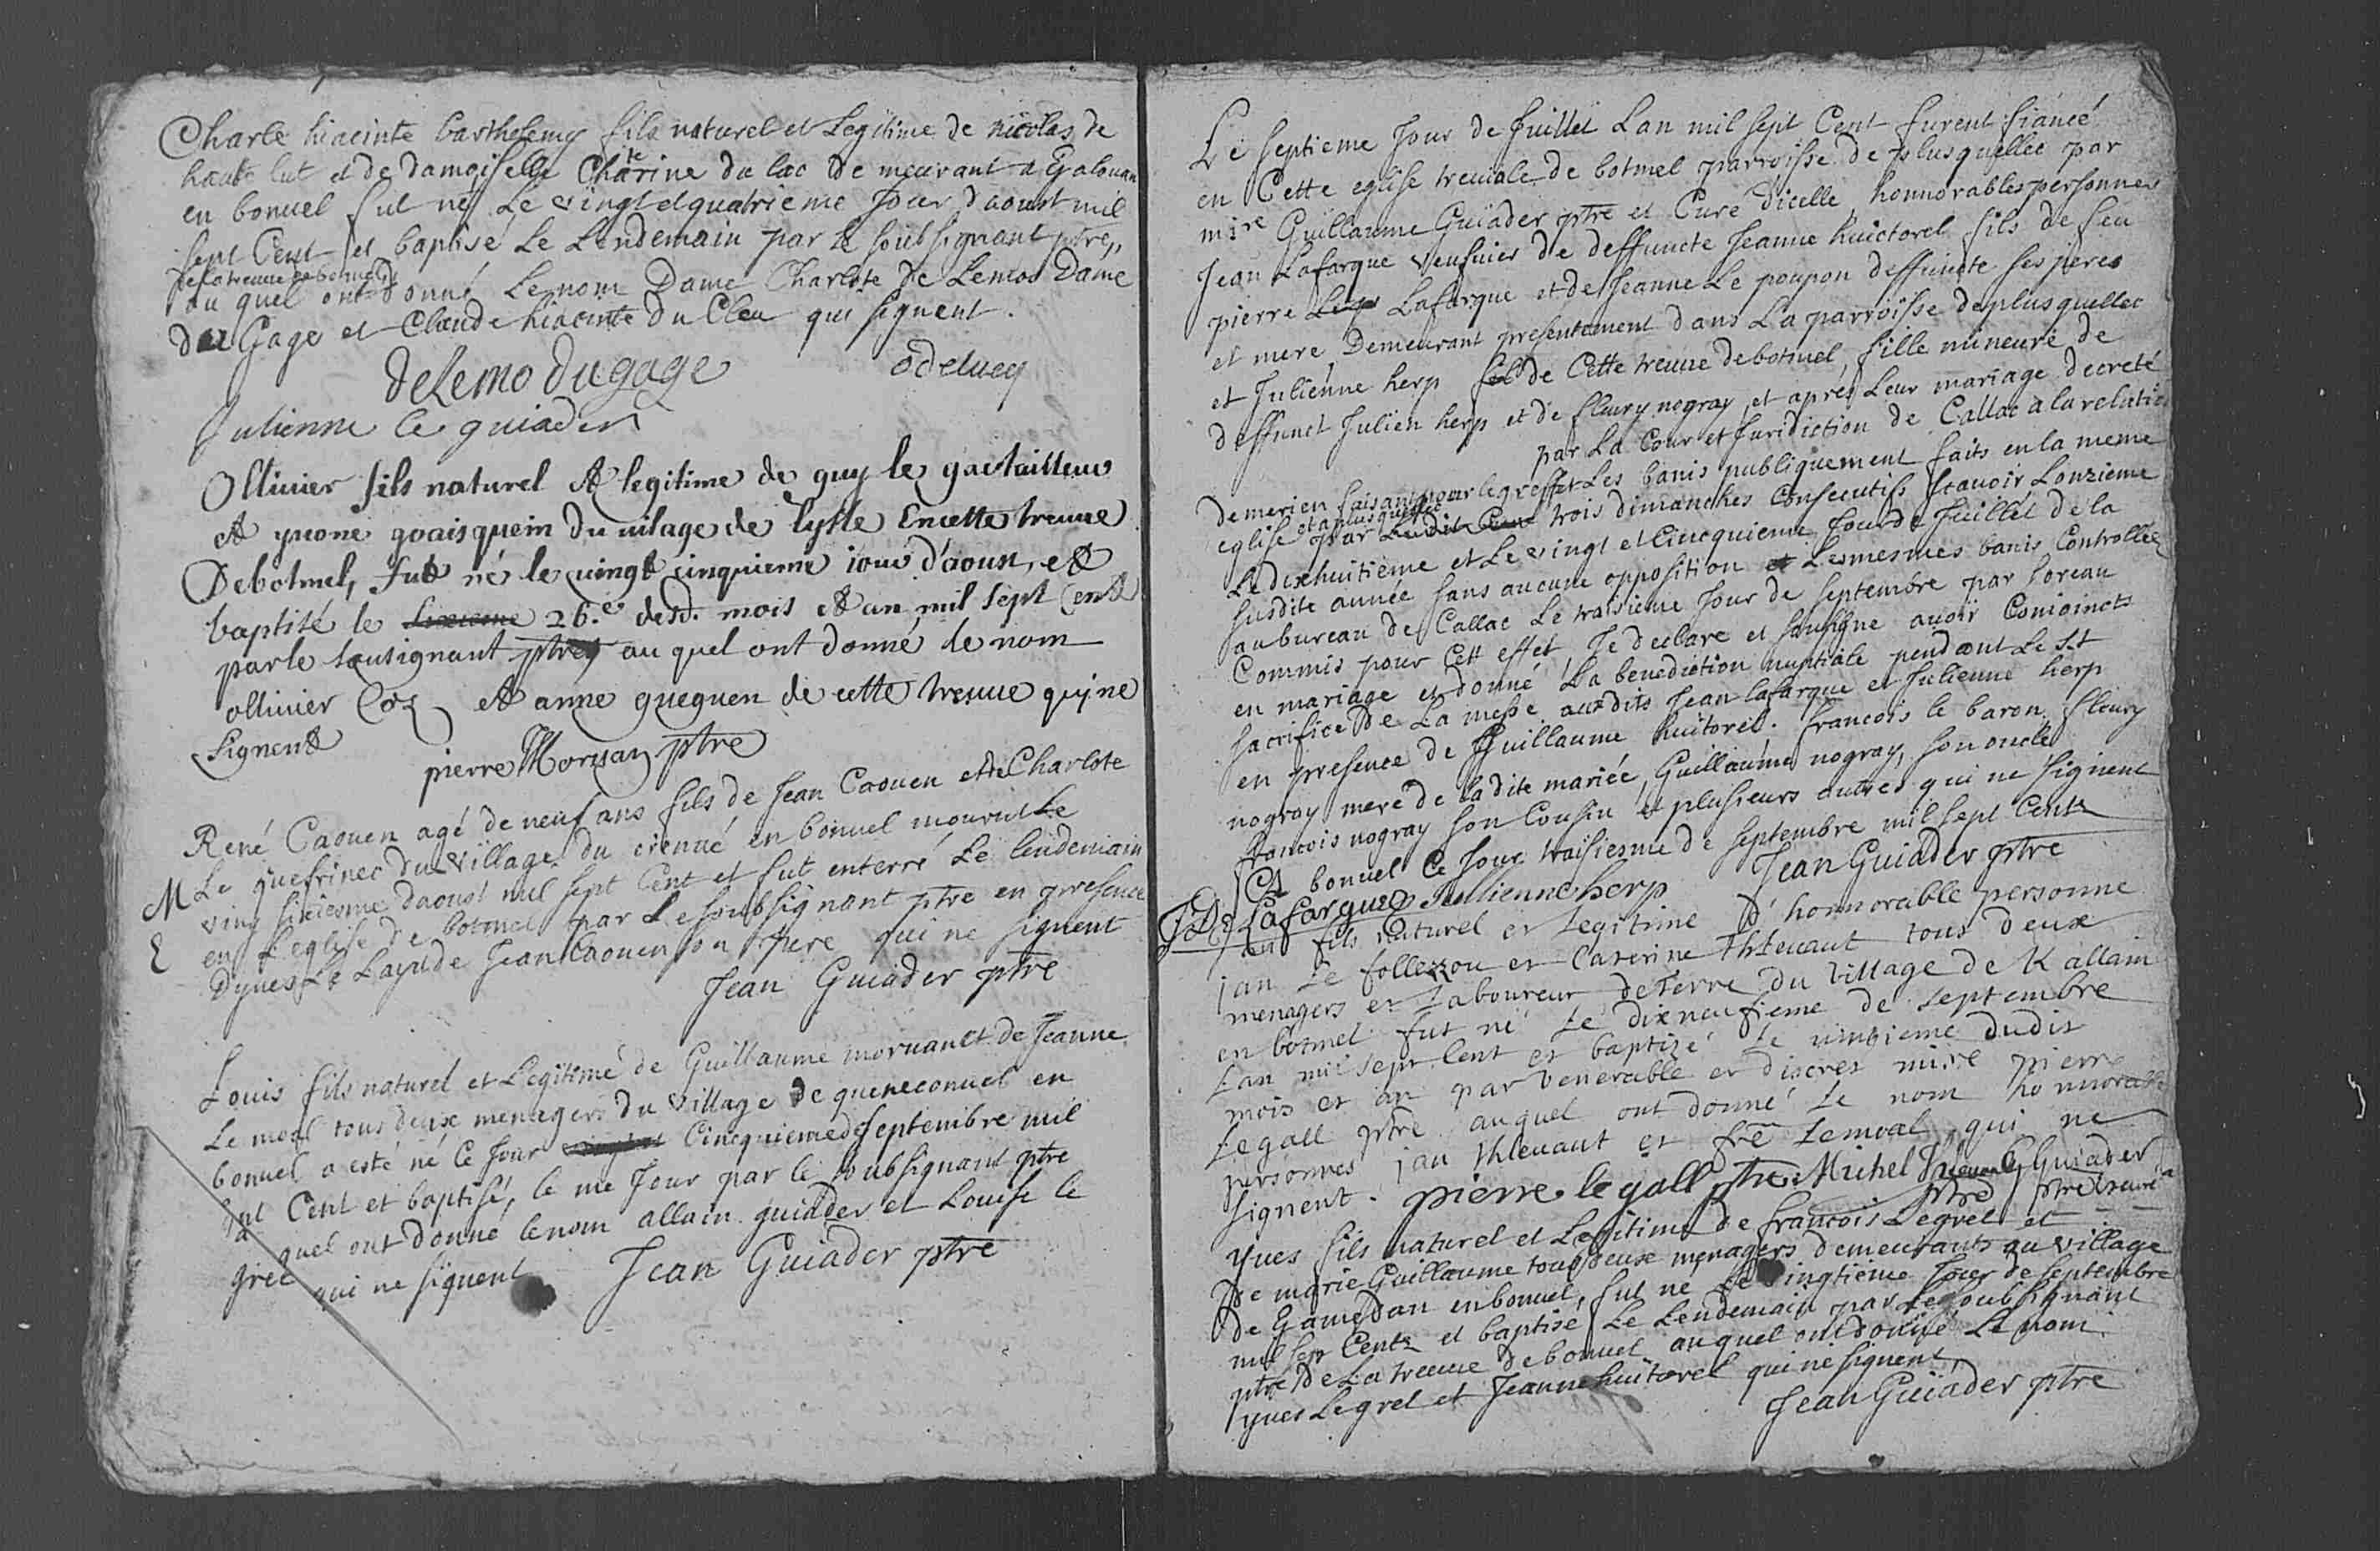 Charle hiacinte barthelemy fils naturel et Legitime de nicolas de
haute lut et de damoiselle Cha^te^rine du lac demeurant a Galouan
en bonuel fut né Le vingt et quatrieme Jour daoust mil
sept Cent et baptisé Le Lendemain par le soubsignant ptre,
de la treuue de botmel
au quel ont donné Le nom Dame Charlote de Lemos Dame
du Gage et Claude hiacinte Du Cleu qui signent.
de Lemo du gage
Julienne le guiader
Ollivier fils naturel et legitime de guy le gactailleur
et yuone goaisquein du vilage de lysle En cette treuue
De botmel, fut né le vingt cinquieme iour d'aoust, et
baptisé le 26.e desd. mois et an mil sept Cent
par le sousignant ptre au quel ont donné le nom
ollivier Coz et anne gueguen de cette treuue qui ne
signent
pierre Morvan ptre
René Caouen agé de neuf ans fils de Jean Caouen et de Charlote
M Le guefrinec du village du crenué en bonuel mourut Le
ving sixiesme daoust mil sept Cent et fut enterré Le lendemain
en Leglise de botmel par Le soubsignant ptre en presence
dyues Le Layude Jean Caouen son pere qui ne signent
Jean Guiader ptre
Louis fils naturel et Legitimé de Guillaume moruan et de Jeanne
Le moal tous deux menagers du village de queneconuel en
bonuel a esté né Ce Jour Cincquieme de septembre mil
sept Cent et baptisé, le me Jour par le soubsignant ptre
a quel ont donné le nom allain guiader et Louise le
gree qui ne signent
Jean Guiader ptre
Le septieme Jour de Juillet Lan mil sept Cent furent fiancé
en Cette eglise treuiale de botmel parroisse de plusquellec par
mire Guillaume Guiader ptre et Curé dicelle, honnorables personnes
Jean Lafarque veufuier de deffuncte Jeanne huictorel fils de feu
pierre Lafarque et de Jeanne Le poupon deffuncte ses peres
et mere, Demeurant presentement dans La parroisse de plusquellec
et Julienne herp de Cette treuue de botmel fille mineure de
deffunct Julien herp et de fleury nogray, et aprés Leur mariage decreté
par La Cour et Juridiction de Callac a la relatio
demerien faisant pour le greffet Les banis publiquement faits en la meme
eglise et a plusquellec par trois dimanches Consecutifs scauoir Lonzieme
Le dixhuitieme et Le vingt et Cincquieme Jour de Juillet de la
susdite année sans aucune opposition et Les mesmes banis Controllés
au bureau de Callac Le traisieme Jour de septembre par horeau
Commis pour Cett effet, Je declare et soussigne auoir Conioincts
en mariage et donné La benediction nuptiale pendant Le st
sacrifice de La messe auxdits Jean Lafarque et Julienne herp
en presence de Guillaume huitorel. francois le baron, fleury
nogray mere de la dite mariée, Guillaume nogray, son oncle
francois nogray son Cousin et plusieurs autres qui ne signent
A bonuel Ce Jour traisiesme de septembre mil sept Cents
Lafarque Jullienne herp Jean Guiader ptre
Jan fils naturel et Legitime d'honnorable personne
jan Le follezou et Caterine Thleuaut tous deux
menagers et Laboureur de Terre du Village de K allain
en botmel fut né le dixneufieme de septembre
Lan mil sept Cent et baptizé le vintieme dudit
mois et an par Venerable et discret mire pierre
Le gall ptre auquel ont donné Le nom honnorable
personnes jan thleuaut et fre Lemoal qui ne
signent. pierre le gall ptre Michel G Guiader
ptre ptre
yues fils naturel et Legitime de francois Legrel et
De marie Guillaume tous deux menagers demeurants au village
De Gamedan en bonuel, fut né Le vingtieme Jour de septembre
mil sept Cents et baptisé Le Lendemain par Le soubsignant
ptre de La treuue de bonuel auquel ont donné Le nom
yues Legrel et Jeanne huitorel qui ne signent,
Jean Guiader ptre